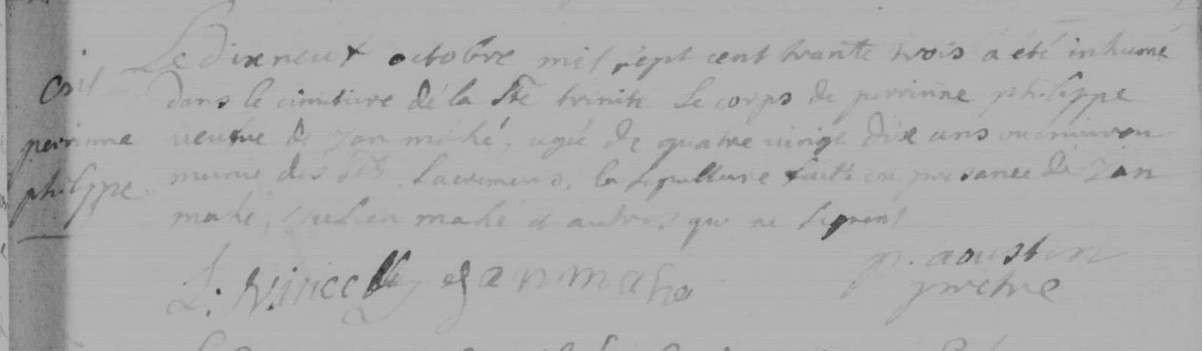 Le Dix neuf octobre mil sept cent trante trois a été inhumé
dans le cimitiere dé la Ste trinité Le corps de perrinne philippe
perrinne
philippe
veufve de Jan mahé, agée de quatre vingt dix ans ou environ
munie des Sts Sacremens, la sepulture faitte en presance de Jan
mahé, Julien mahé et autres qui ne signent
L. Jan mahé
p. aoustin
prêtre